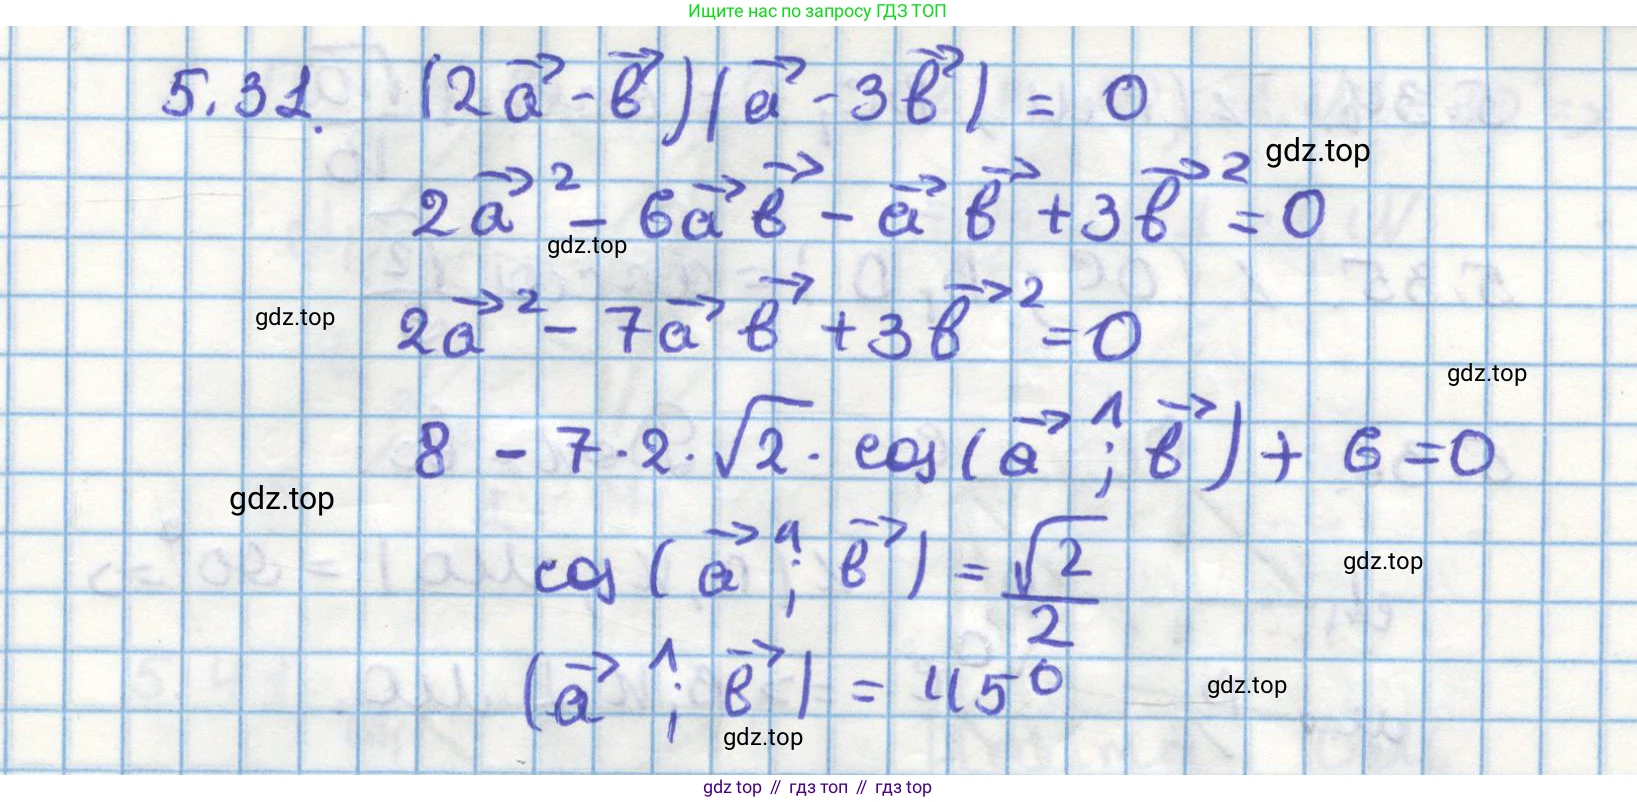 Ищите нас по запросу ГДЗ ТОП
5.31. (2a⃗ - b⃗)(a⃗ - 3b⃗) = 0
gdz.top
2a⃗² - 6a⃗b⃗ - a⃗b⃗ + 3b⃗² = 0
gdz.top
gdz.top
2a⃗² - 7a⃗b⃗ + 3b⃗² = 0
gdz.top
8 - 7·2·√2·cos(a⃗^;b⃗) + 6 = 0
gdz.top
cos(a⃗^;b⃗) = √2/2
gdz.top
(a⃗^;b⃗) = 45⁰
gdz.top
gdz.top
gdz top // гдз топ // гдз top